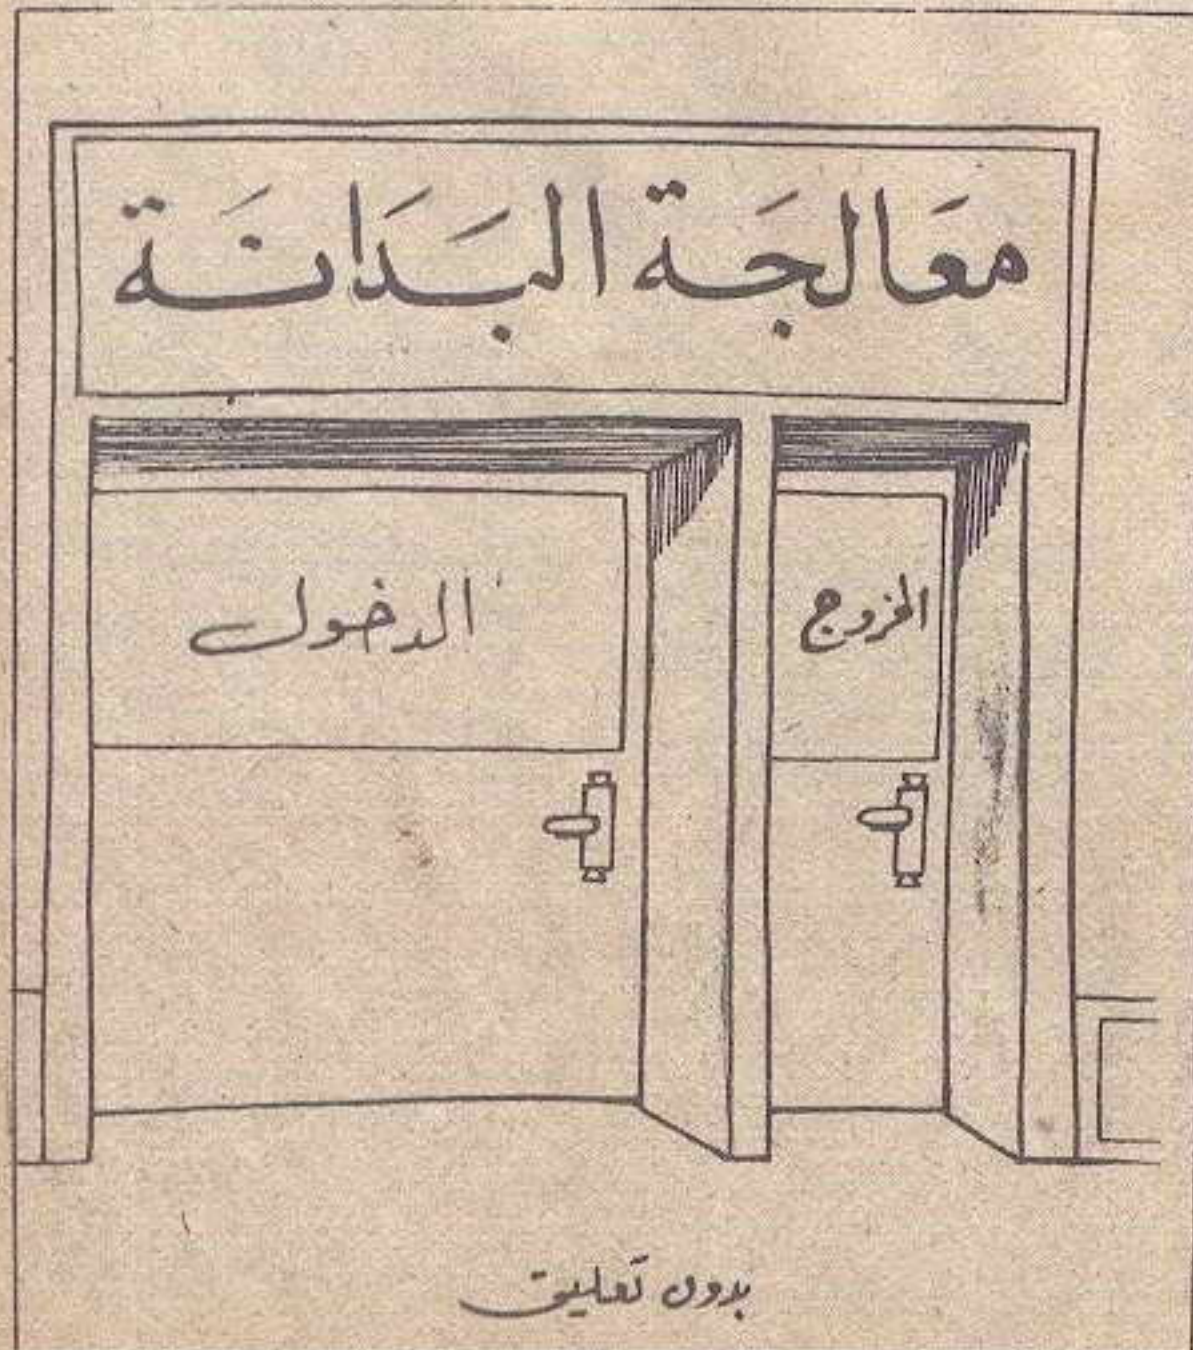 مَعَالجَة البَدَانَة
الخروج
الدخول
بدون تعليق